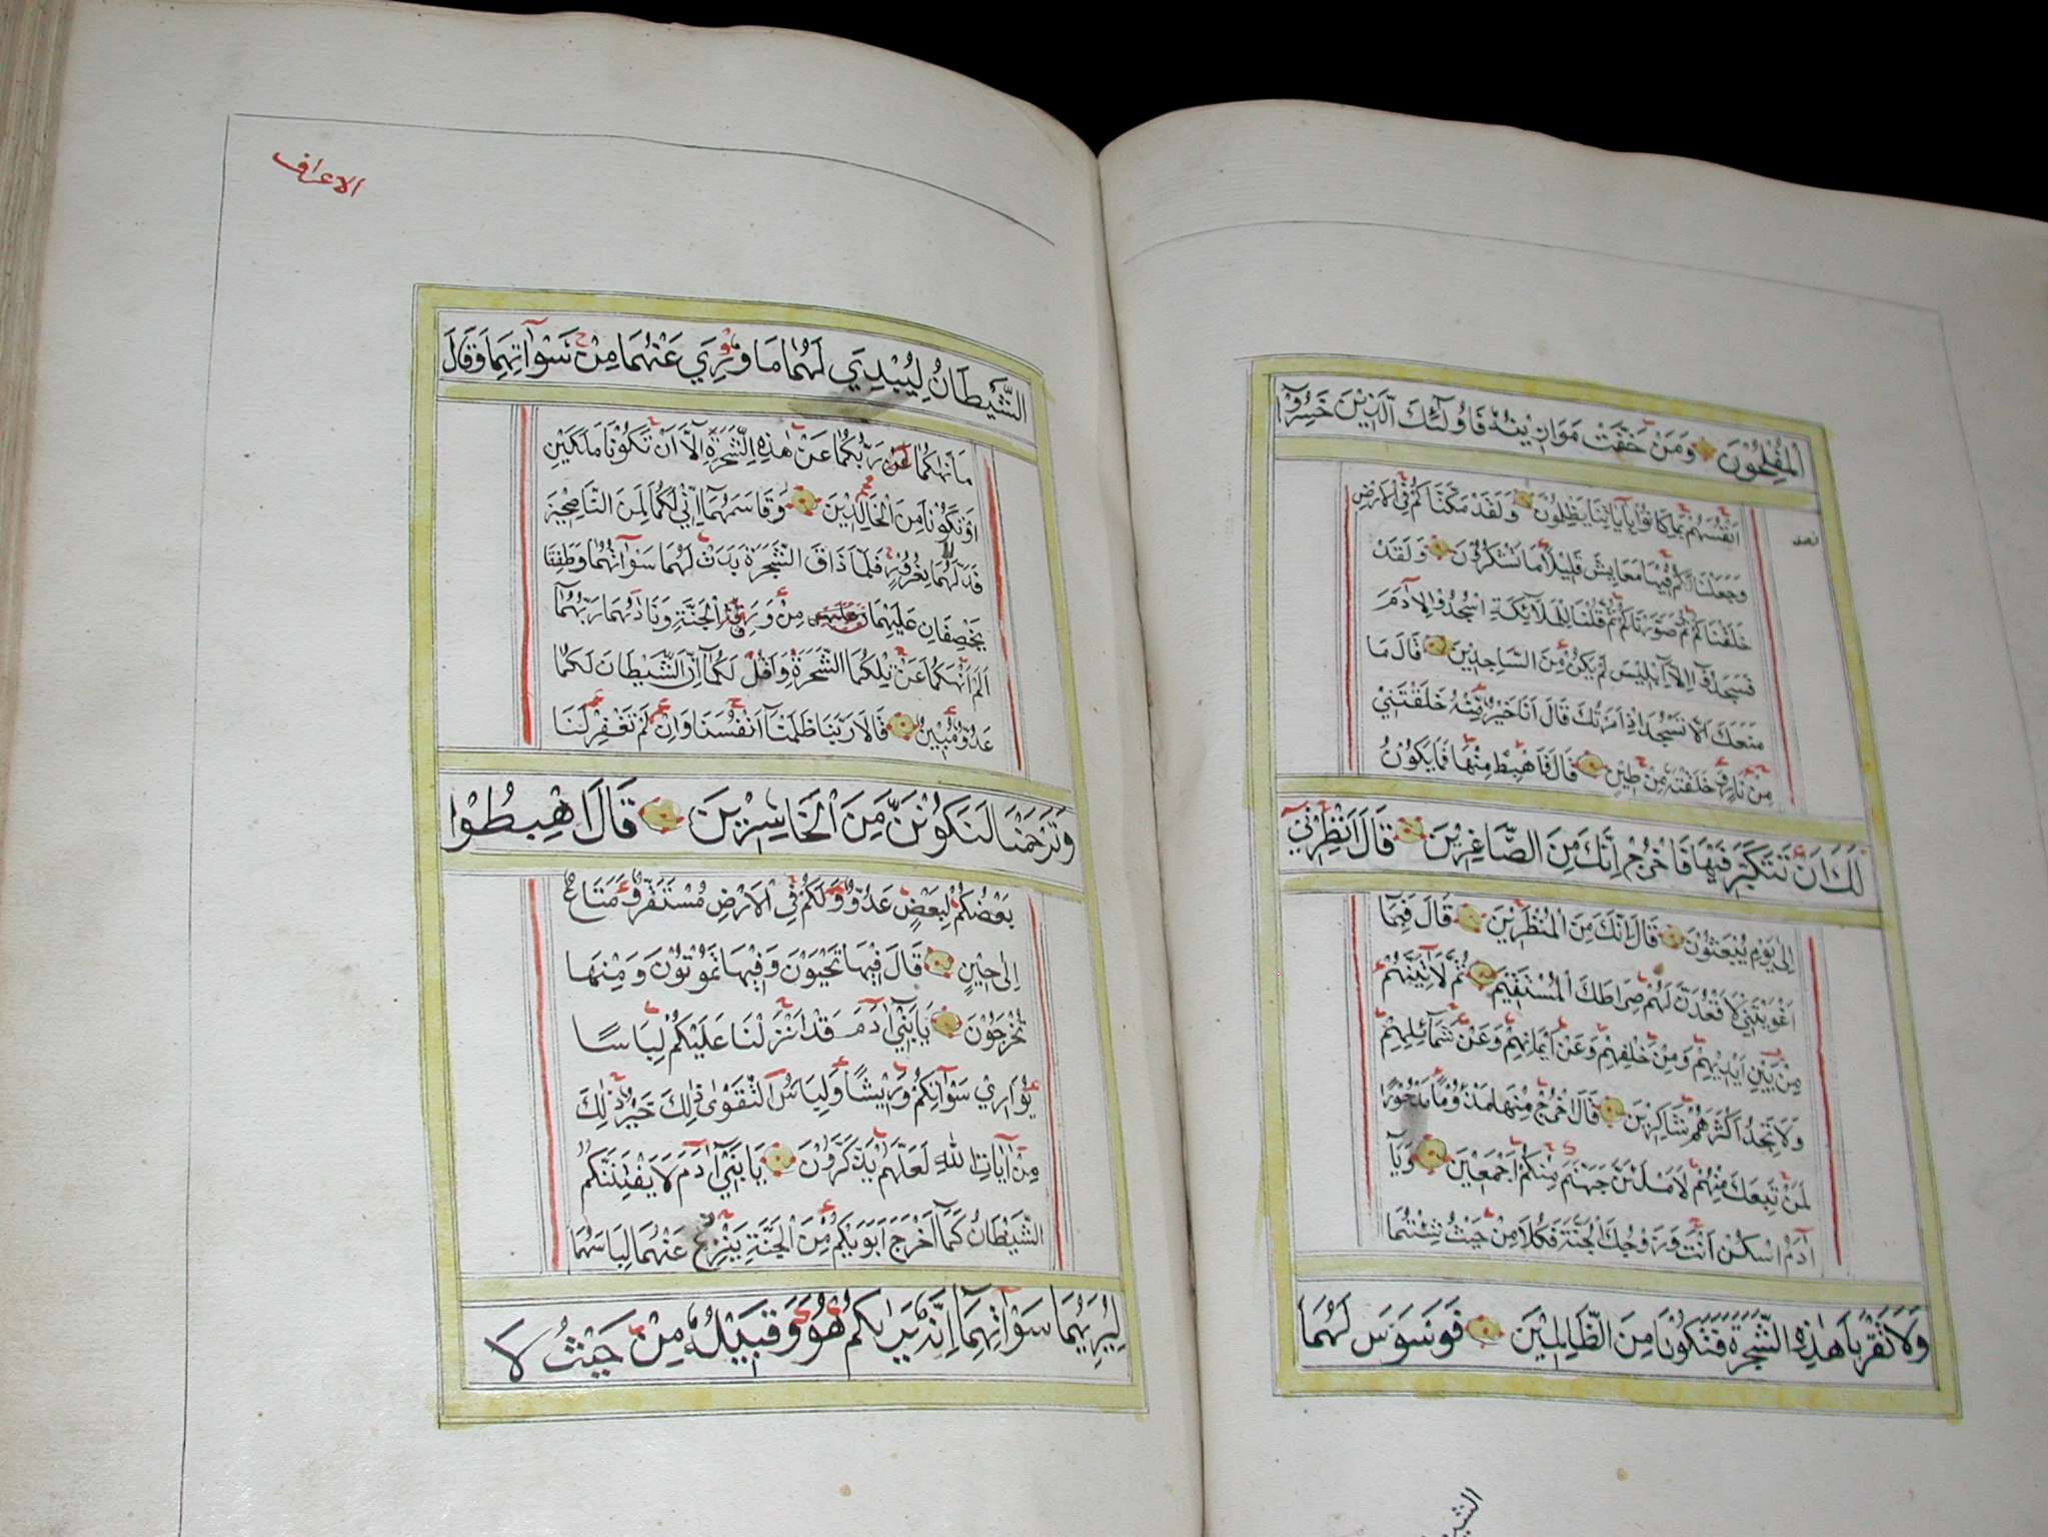 المُفْلِحُوْنَ وَمَنْ خَفَّتْ مَوَازِيْنُهُ فَاُولٰٓئِكَ الَّذِيْنَ خَسِرُوْٓا
اَنْفُسَهُمْ بِمَا كَانُوْا بِاٰيَاتِنَا يَظْلِمُوْنَ وَلَقَدْ مَكَّنَّاكُمْ فِي الْاَرْضِ
وَجَعَلْنَا لَكُمْ فِيْهَا مَعَايِشَ قَلِيْلًا مَا تَشْكُرُوْنَ وَلَقَدْ
خَلَقْنَاكُمْ ثُمَّ صَوَّرْنَاكُمْ ثُمَّ قُلْنَا لِلْمَلَآئِكَةِ اسْجُدُوْا لِاٰدَمَ
فَسَجَدُوْٓا اِلَّآ اِبْلِيْسَ لَمْ يَكُنْ مِنَ السَّاجِدِيْنَ قَالَ مَا
مَنَعَكَ اَلَّا تَسْجُدَ اِذْ اَمَرْتُكَ قَالَ اَنَا خَيْرٌ مِنْهُ خَلَقْتَنِيْ
مِنْ نَارٍ وَخَلَقْتَهُ مِنْ طِيْنٍ قَالَ فَاهْبِطْ مِنْهَا فَمَا يَكُوْنُ
لَكَ اَنْ تَتَكَبَّرَ فِيْهَا فَاخْرُجْ اِنَّكَ مِنَ الصَّاغِرِيْنَ قَالَ اَنْظِرْنِيْٓ
اِلٰى يَوْمِ يُبْعَثُوْنَ قَالَ اِنَّكَ مِنَ الْمُنْظَرِيْنَ قَالَ فَبِمَآ
اَغْوَيْتَنِيْ لَاَقْعُدَنَّ لَهُمْ صِرَاطَكَ الْمُسْتَقِيْمَ ثُمَّ لَاٰتِيَنَّهُمْ
مِنْ بَيْنِ اَيْدِيْهِمْ وَمِنْ خَلْفِهِمْ وَعَنْ اَيْمَانِهِمْ وَعَنْ شَمَآئِلِهِمْ
وَلَا تَجِدُ اَكْثَرَهُمْ شَاكِرِيْنَ قَالَ اخْرُجْ مِنْهَا مَذْؤُمًا مَدْحُوْرًا
لَمَنْ تَبِعَكَ مِنْهُمْ لَاَمْلَئَنَّ جَهَنَّمَ مِنْكُمْ اَجْمَعِيْنَ وَيَآ
اٰدَمُ اسْكُنْ اَنْتَ وَزَوْجُكَ الْجَنَّةَ فَكُلَا مِنْ حَيْثُ شِئْتُمَا
وَلَا تَقْرَبَا هٰذِهِ الشَّجَرَةَ فَتَكُوْنَا مِنَ الظَّالِمِيْنَ فَوَسْوَسَ لَهُمَا
الاعراف
الشَّيْطَانُ لِيُبْدِيَ لَهُمَا مَا وُرِيَ عَنْهُمَا مِنْ سَوْاٰتِهِمَا وَقَالَ
مَا نَهٰكُمَا عَنْ رَبُّكُمَا عَنْ هٰذِهِ الشَّجَرَةِ اِلَّآ اَنْ تَكُوْنَا مَلَكَيْنِ
اَوْ تَكُوْنَا مِنَ الْخَالِدِيْنَ وَقَاسَمَهُمَآ اِنِّيْ لَكُمَا لَمِنَ النَّاصِحِيْنَ
فَدَلّٰهُمَا بِغُرُوْرٍ فَلَمَّا ذَاقَ الشَّجَرَةَ بَدَتْ لَهُمَا سَوْاٰتُهُمَا وَطَفِقَا
يَخْصِفَانِ عَلَيْهِمَا مِنْ وَرَقِ الْجَنَّةِ وَنَادٰىهُمَا رَبُّهُمَآ
اَلَمْ اَنْهَكُمَا عَنْ تِلْكُمَا الشَّجَرَةِ وَاَقُلْ لَكُمَآ اِنَّ الشَّيْطَانَ لَكُمَا
عَدُوٌّ مُبِيْنٌ قَالَا رَبَّنَا ظَلَمْنَآ اَنْفُسَنَا وَاِنْ لَمْ تَغْفِرْ لَنَا
وَتَرْحَمْنَا لَنَكُوْنَنَّ مِنَ الْخَاسِرِيْنَ قَالَ اهْبِطُوْا
بَعْضُكُمْ لِبَعْضٍ عَدُوٌّ وَلَكُمْ فِي الْاَرْضِ مُسْتَقَرٌّ وَمَتَاعٌ
اِلٰى حِيْنٍ قَالَ فِيْهَا تَحْيَوْنَ وَفِيْهَا تَمُوْتُوْنَ وَمِنْهَا
تُخْرَجُوْنَ يَا بَنِيْٓ اٰدَمَ قَدْ اَنْزَلْنَا عَلَيْكُمْ لِبَاسًا
يُوَارِيْ سَوْاٰتِكُمْ وَرِيْشًا وَلِبَاسُ التَّقْوٰى ذٰلِكَ خَيْرٌ ذٰلِكَ
مِنْ اٰيَاتِ اللّٰهِ لَعَلَّهُمْ يَذَّكَّرُوْنَ يَا بَنِيْٓ اٰدَمَ لَا يَفْتِنَنَّكُمُ
الشَّيْطَانُ كَمَآ اَخْرَجَ اَبَوَيْكُمْ مِنَ الْجَنَّةِ يَنْزِعُ عَنْهُمَا لِبَاسَهُمَا
لِيُرِيَهُمَا سَوْاٰتِهِمَآ اِنَّهُ يَرٰىكُمْ هُوَ وَقَبِيْلُهُ مِنْ حَيْثُ لَا